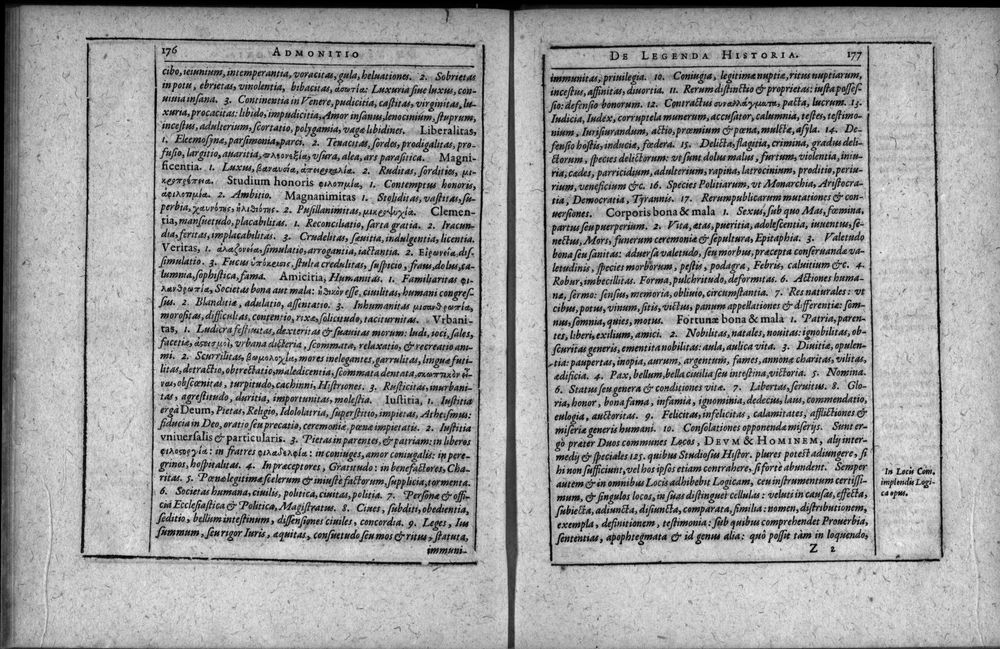 176 ADMONITIO
cibo, ieiunium, intemperantia, voracitas, gula, heluationes. 2. Sobrietas
in potu, ebrietas, vinolentia, bibacitas, ἀσωτία: Luxuria siue luxus, con-
uiuia insana. 3. Continentia in Venere, pudicitia, castitas, virginitas, lu-
xuria, procacitas: libido, impudicitia, Amor insanus, lenocinium, stuprum,
incestus, adulterium, scortatio, polygamia, vagæ libidines. Liberalitas,
1. Eleemosynæ, parsimonia, parci. 2. Tenacitas, sordes, prodigalitas, pro-
fusio, largitio, auaritia, πλεονεξία, vsura, alea, ars parasitica. Magni-
ficentia. 1. Luxus, βαναυσία, ἀπειροκαλία. 2. Ruditas, sordities, μι-
κροπρέπεια. Studium honoris φιλοτιμία, 1. Contemptus honoris,
ἀφιλοτιμία. 2. Ambitio. Magnanimitas 1. Stoliditas, vastitas, su-
perbia, χαυνότης, ἠλιθιότης. 2. Pusillanimitas, μικροψυχία. Clemen-
tia, mansuetudo, placabilitas. 1. Reconciliatio, sarta gratia. 2. Iracun-
dia, feritas, implacabilitas. 3. Crudelitas, sæuitia, indulgentia, licentia.
Veritas, 1. ἀλαζονεία, simulatio, arrogantia, iactantia. 2. Εἰρωνεία, dis-
simulatio. 3. Fucus ὑπόκρισις, stulta credulitas, suspicio, fraus, dolus, ca-
lumnia, sophistica, fama. Amicitia, Humanitas. 1. Familiaritas φι-
λανθρωπία, Societas bona aut mala: ἠθικὸν esse, ciuilitas, humani congres-
sus. 2. Blanditiæ, adulatio, assentatio. 3. Inhumanitas μισανθρωπία,
morositas, difficultas, contentio, rixæ, solicitudo, taciturnitas. Vrbani-
tas, 1. Ludicra festiuitas, dexteritas & suauitas morum: ludi, ioci, sales,
facetiæ, ἀστεισμοὶ, vrbana dicteria, scommata, relaxatio, & recreatio ani-
mi. 2. Scurrilitas, βωμολοχία, mores inelegantes, garrulitas, linguæ futi-
litas, detractio, obtrectatio, maledicentia, scommata dentata, σκωπτικὸν εἶ-
ναι, obscœnitas, turpitudo, cachinni, Histriones. 3. Rusticitas, inurbani-
tas, agrestitudo, duritia, importunitas, molestia. Iustitia, 1. Iustitia
erga Deum, Pietas, Religio, Idololatria, superstitio, impietas, Atheismus:
fiducia in Deo, oratio seu precatio, ceremoniæ, pœnæ impietatis. 2. Iustitia
vniuersalis & particularis. 3. Pietas in parentes, & patriam: in liberos
φιλοστοργία: in fratres φιλαδελφία: in coniuges, amor coniugalis: in pere-
grinos, hospitalitas. 4. In præceptores, Gratitudo: in benefactores, Cha-
ritas. 5. Pœnæ legitimæ scelerum & iniuste factorum, supplicia, tormenta.
6. Societas humana, ciuilis, politica, ciuitas, politia. 7. Personæ & offi-
cia Ecclesiastica & Politica, Magistratus. 8. Ciues, subditi, obedientia,
seditio, bellum intestinum, dissensiones ciuiles, concordia. 9. Leges, Ius
summum, seu rigor Iuris, æquitas, consuetudo seu mos & ritus, statuta,
immuni-
DE LEGENDA HISTORIA. 177
immunitas, priuilegia. 10. Coniugia, legitimæ nuptiæ, ritus nuptiarum,
incestus, affinitas, diuortia. 11. Rerum distinctio & proprietas: iusta posses-
sio: defensio bonorum. 12. Contractus συναλλάγματα, pacta, lucrum. 13.
Iudicia, Iudex, corruptela munerum, accusator, calumnia, testes, testimo-
nium, Iurisiurandum, actio, præmium & pœna, mulctæ, asyla. 14. De-
fensio hostis, induciæ, fœdera. 15. Delicta, flagitia, crimina, gradus deli-
ctorum, species delictorum: vt sunt dolus malus, furtum, violentia, iniu-
ria, cædes, parricidium, adulterium, rapina, latrocinium, proditio, periu-
rium, veneficium &c. 16. Species Politiarum, vt Monarchia, Aristocra-
tia, Democratia, Tyrannis. 17. Rerumpublicarum mutationes & con-
uersiones. Corporis bona & mala 1. Sexus, sub quo Mas, fœmina,
partus seu puerperium. 2. Vita, ætas, pueritia, adolescentia, iuuentus, se-
nectus, Mors, funerum ceremoniæ & sepultura, Epitaphia. 3. Valetudo
bona seu sanitas: aduersa valetudo, seu morbus, præcepta conseruandæ va-
letudinis, species morborum, pestis, podagra, Febris, caluitium &c. 4.
Robur, imbecillitas. Forma, pulchritudo, deformitas. 6. Actiones huma-
næ, sermo: sensus, memoria, obliuio, circumstantia. 7. Res naturales: vt
cibus, potus, vinum, sitis, victus, panum appellationes & differentiæ: som-
nus, somnia, quies, motus. Fortunæ bona & mala 1. Patria, paren-
tes, liberi, exilium, amici. 2. Nobilitas, natales, nouitas: ignobilitas, ob-
scuritas generis, ementita nobilitas: aula, aulica vita. 3. Diuitiæ, opulen-
tia: paupertas, inopia, aurum, argentum, fames, annonæ charitas, vilitas,
ædificia. 4. Pax, bellum, bella ciuilia seu intestina, victoria. 5. Nomina.
6. Status seu genera & conditiones vitæ. 7. Libertas, seruitus. 8. Glo-
ria, honor, bona fama, infamia, ignominia, dedecus, laus, commendatio,
eulogia, auctoritas. 9. Felicitas, infelicitas, calamitates, afflictiones &
miseriæ generis humani. 10. Consolationes opponendæ miserijs. Sunt er-
gò præter Duos communes Locos, DEVM & HOMINEM, alij inter-
medij & speciales 125. quibus Studiosus Histor. plures potest adiungere, si
hi non sufficiunt, vel hos ipsos etiam contrahere, si forte abundent. Semper
autem & in omnibus Locis adhibebit Logicam, ceu instrumentum certissi-
mum, & singulos locos, in suas distinguet cellulas: veluti in causas, effecta,
subiecta, adiuncta, disiuncta, comparata, similia: nomen, distributionem,
exempla, definitionem, testimonia: sub quibus comprehendet Prouerbia,
sententias, apophtegmata & id genus alia: quò possit tam in loquendo,
Z 2
In Locis Com.
implendis Logi-
ca opus.